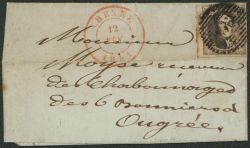 HERVE
12
Monsieur
Moyse receveur
des Charbonnages
des 6 Bonniers à
Ougrée.